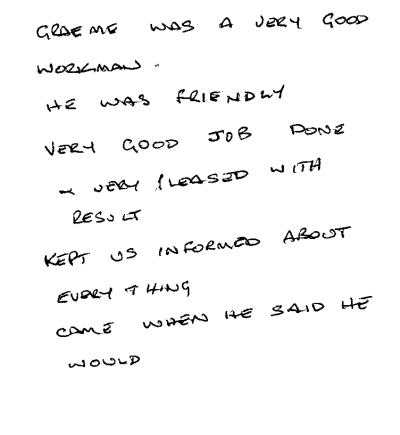 GRAEME WAS A VERY GOOD
WORKMAN.
HE WAS FRIENDLY
VERY GOOD JOB DONE
& VERY PLEASED WITH
RESULT
KEPT US INFORMED ABOUT
EVERY THING
CAME WHEN HE SAID HE
WOULD